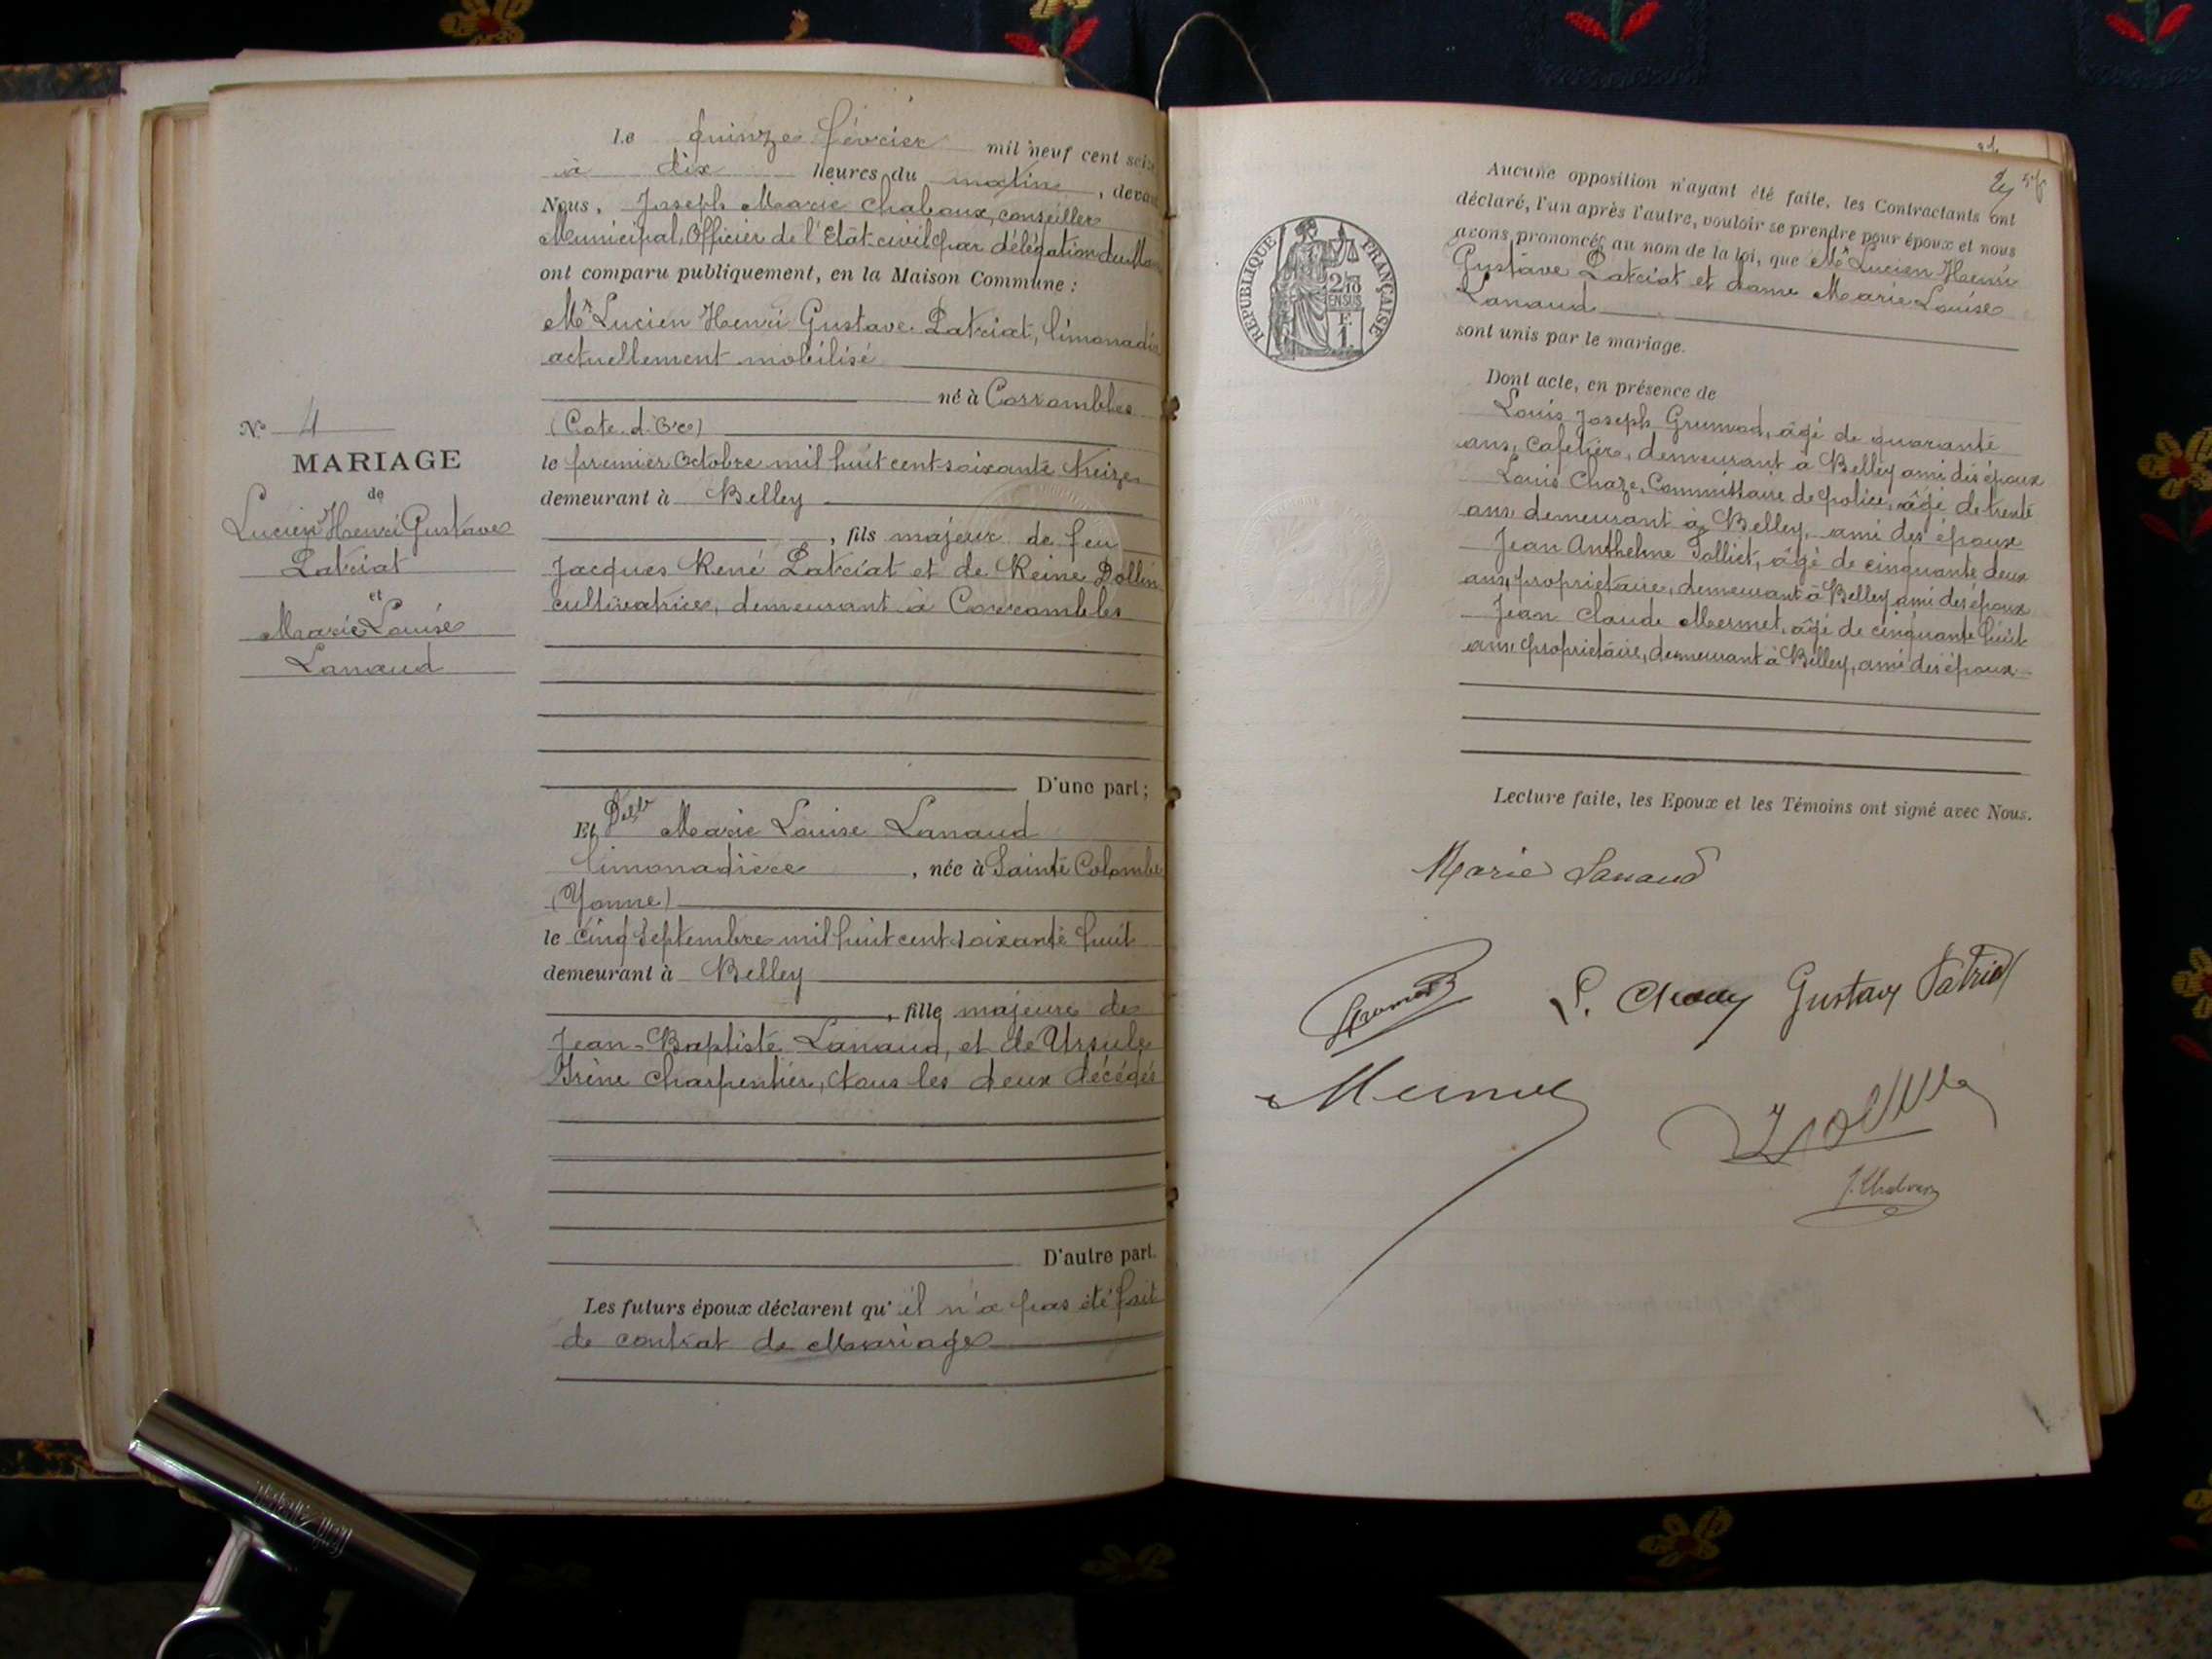 Le quinze février mil neuf cent seize
à dix heures du matin, devant
Nous, Joseph Marie Chaboux, conseiller
Municipal, Officier de l'Etat-civil par délégation du Maire
ont comparu publiquement, en la Maison Commune :
Mr Lucien Henri Gustave Patriat, limonadier
actuellement mobilisé
né à Corrombles
(Cote d'Or)
le premier Octobre mil huit cent soixante treize
demeurant à Belley
, fils majeur de feu
Jacques René Patriat et de Reine Dollin
cultivatrice, demeurant à Corrombles
D'une part ;
Et Delle Marie Louise Lanaud
limonadière, née à Sainte Colombe
(Yonne)
le cinq Septembre mil huit cent soixante huit
demeurant à Belley
, fille majeure de
Jean-Baptiste Lanaud, et de Ursule
Irène Charpentier, tous les deux décédés
D'autre part.
Les futurs époux déclarent qu'il n'a pas été fait
de contrat de Mariage
N° 4
MARIAGE
de
Lucien Henri Gustave
Patriat
et
Marie Louise
Lanaud
Aucune opposition n'ayant été faite, les Contractants ont
déclaré, l'un après l'autre, vouloir se prendre pour époux et nous
avons prononcé, au nom de la loi, que Mr Lucien Henri
Gustave Patriat et dame Marie Louise
Lanaud
sont unis par le mariage.
Dont acte, en présence de
Louis Joseph Grumod, âgé de quarante
ans, Cafetier, demeurant à Belley ami des époux
Louis Chaze, Commissaire de police, âgé de trente
ans demeurant à Belley, ami des époux
Jean Anthelme Tolliet, âgé de cinquante deux
ans, propriétaire, demeurant à Belley ami des époux
Jean Claude Mermet, âgé de cinquante huit
ans propriétaire, demeurant à Belley, ami des époux
Lecture faite, les Epoux et les Témoins ont signé avec Nous.
Marie Lanaud
Gustave Patriat
RÉPUBLIQUE FRANÇAISE
2/10
EN SUS
F.
1.